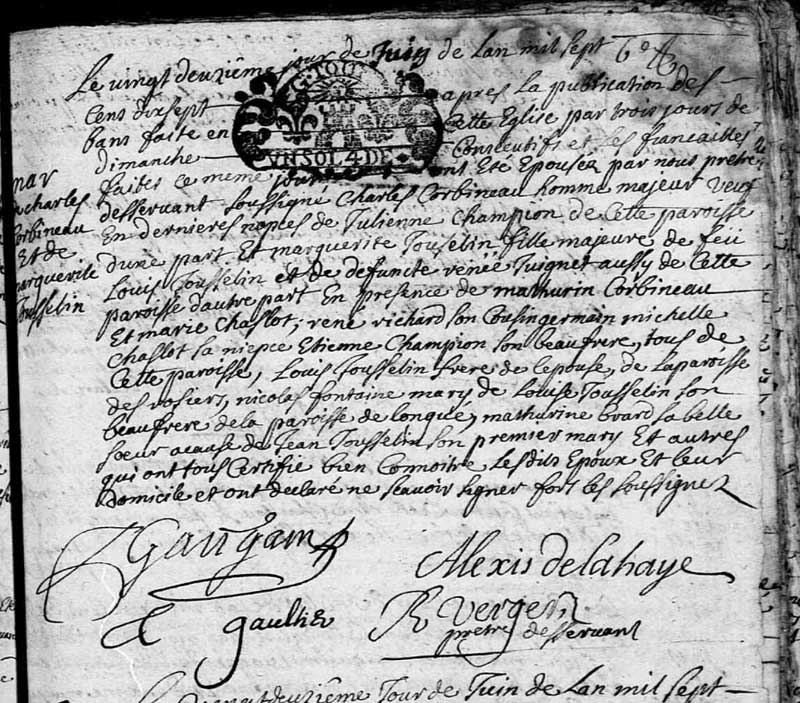 Le vingt deuziême jour de Juin de Lan mil sept
Cens dix sept apres La publication des
bans faite en Cette Eglise par trois jours de
dimanche Consecutifs et les fiancailles
faites ce meme jour ont Eté Epousez par nous pretre
desservant soussigné Charles Corbineau homme majeur veuf
En dernieres nopces de Julienne Champion de Cette paroisse
dune part Et marguerite Tousselin fille majeure de feu
Louis Tousselin et de defuncte renée Juignet aussy de Cette
paroisse dautre part En presence de mathurin Corbineau
Et marie Chaslot, rené richard son Cousin germain michelle
Chaslot sa niepce Etienne Champion son beaufrere, tous de
Cette paroisse, Louis Tousselin frere de lepouse, de Laparoisse
des rosiers, nicolas fontaine mary de Louise Tousselin son
beaufrere dela paroisse de Longué, mathurine board sa belle
soeur acause de Jean Tousselin son premier mary Et autres
qui ont tous Certifié bien Connoitre Lesdits Epoux Et leur
domicile et ont declaré ne scavoir signer fors les soussignez
mar
charles
Corbineau
Et de
marguerite
Tousselin
G. TOU
UN SOL 4 DE
Alexis delahaye
gaultier
R Verger
pretre desservant
deuziême Jour de Juin de Lan mil sept